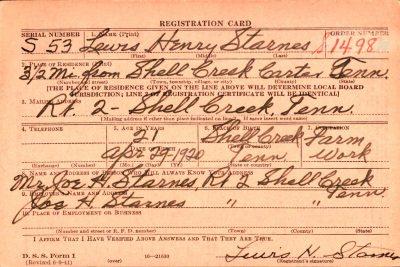 REGISTRATION CARD
SERIAL NUMBER 1. NAME (Print) ORDER NUMBER
S 53 Lewis Henry Starnes S1498
(First) (Middle) (Last)
2. PLACE OF RESIDENCE (Print)
3 1/2 Mi. from Shell Creek Carter Tenn.
(Number and street) (Town, township, village, or city) (County) (State)
[THE PLACE OF RESIDENCE GIVEN ON THE LINE ABOVE WILL DETERMINE LOCAL BOARD
JURISDICTION; LINE 2 OF REGISTRATION CERTIFICATE WILL BE IDENTICAL]
3. MAILING ADDRESS
Rt. 2 - Shell Creek, Tenn.
[Mailing address if other than place indicated on line 2. If same insert word same]
4. TELEPHONE 5. AGE IN YEARS 6. PLACE OF BIRTH 7. OCCUPATION
Shell Creek Farm
DATE OF BIRTH
1920 Tenn Work
(Exchange) (Number) (Mo.) (Day) (Yr.)
8. NAME AND ADDRESS OF PERSON WHO WILL ALWAYS KNOW YOUR ADDRESS
Mr. Joe H. Starnes, Rt 2 Shell Creek Tenn.
9. EMPLOYER'S NAME AND ADDRESS
Joe H Starnes " "
10. PLACE OF EMPLOYMENT OR BUSINESS
(Number and street or R. F. D. number) (Town) (County) (State)
I AFFIRM THAT I HAVE VERIFIED ABOVE ANSWERS AND THAT THEY ARE TRUE.
D. S. S. Form 1 16—21630 Lewis H. Starnes
(Revised 6-9-41) (Registrant's signature)